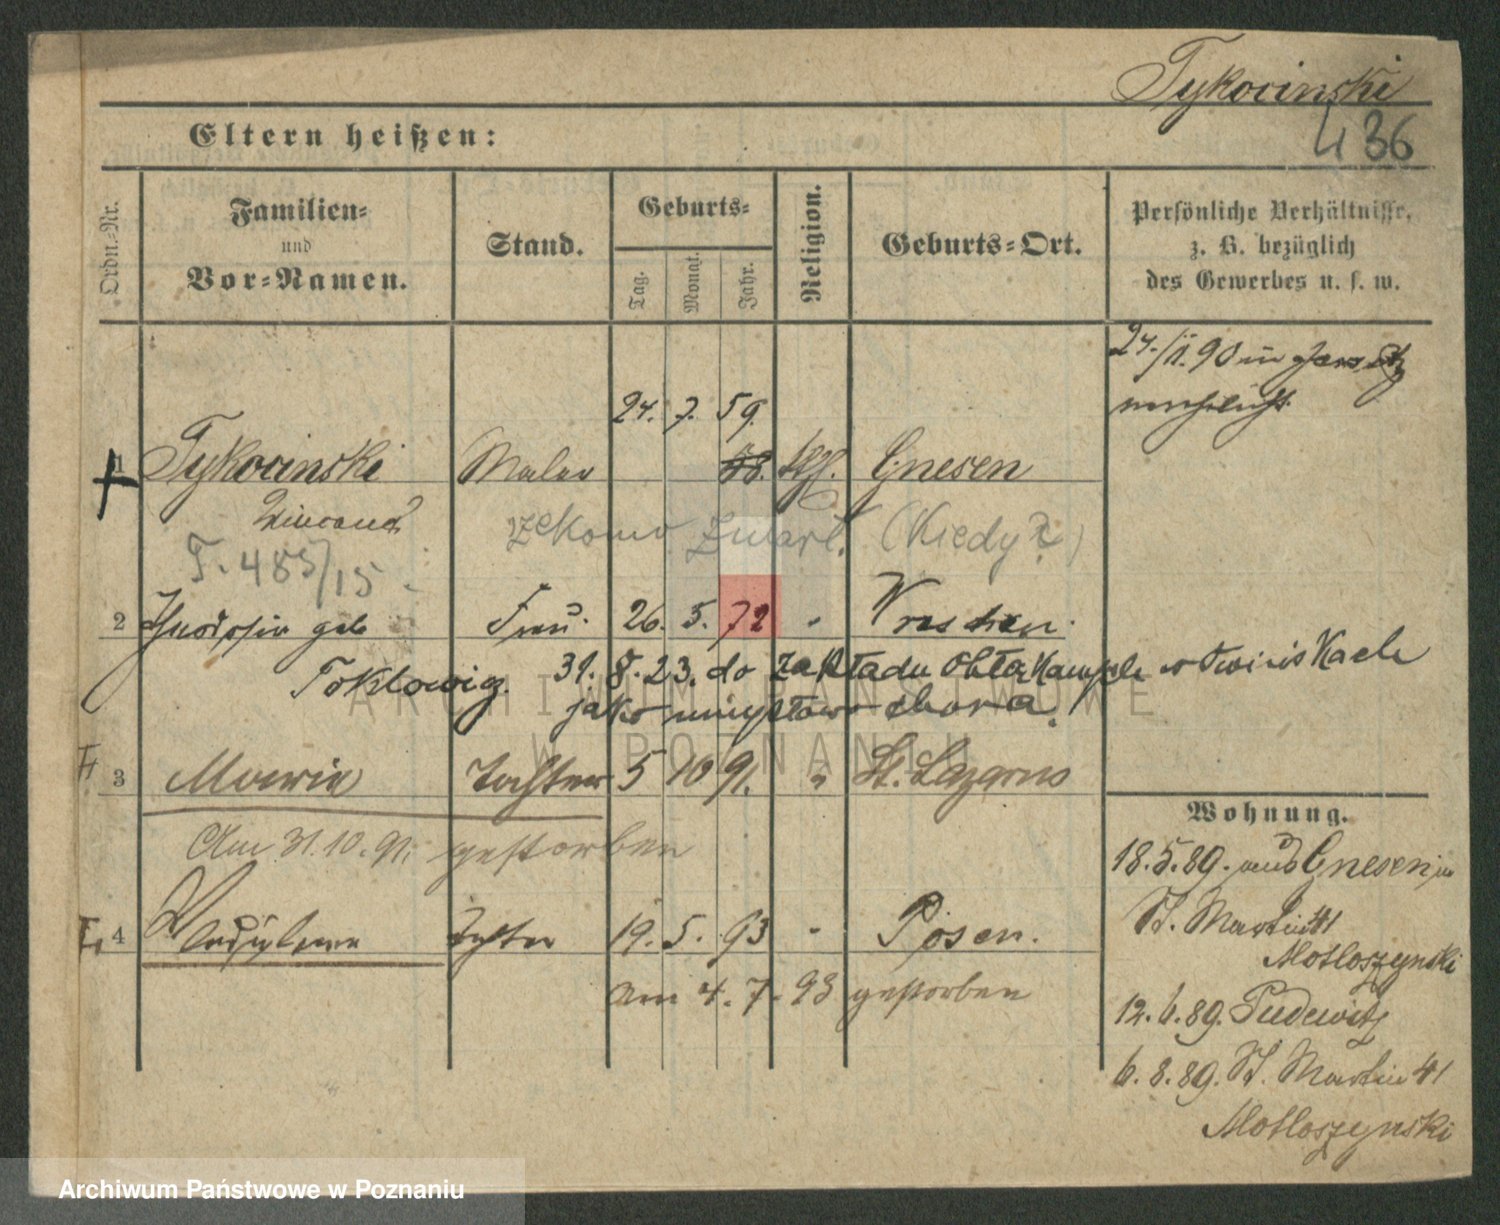 Tykocinski
436
Eltern heißen:
Ordn.-Nr.
Familien-
und
Vor-Namen.
Stand.
Geburts-
Tag.
Monat.
Jahr.
Religion.
Geburts-Ort.
Persönliche Verhältnisse,
z. B. bezüglich
des Gewerbes u. s. w.
24./11.90 in Jersitz
verehelicht.
24. 7. 59.
1 Tykocinski Maler 58. kth. Gnesen
Vincent
rzekomo zmarł. (kiedy?)
T. 485/15
2 Theodosia geb Frau 26. 5. 72 " Wreschen.
Toklowicz.
31. 8. 23. do zakładu obłąkanych w Dwiniskach
jako umysłowo chora.
3 Maria Tochter 5 10 91. " St. Lazarus
Am 31.10.91. gestorben
4 Tochter 19. 5. 93 " Posen.
am 4. 7. 93 gestorben
Wohnung.
18.5.89. aus Gnesen in
St. Martin 41
Motloszynski
12.6.89. Pudewitz
6.8.89. St. Martin 41
Motloszynski
ARCHIWUM PAŃSTWOWE
W POZNANIU
Archiwum Państwowe w Poznaniu